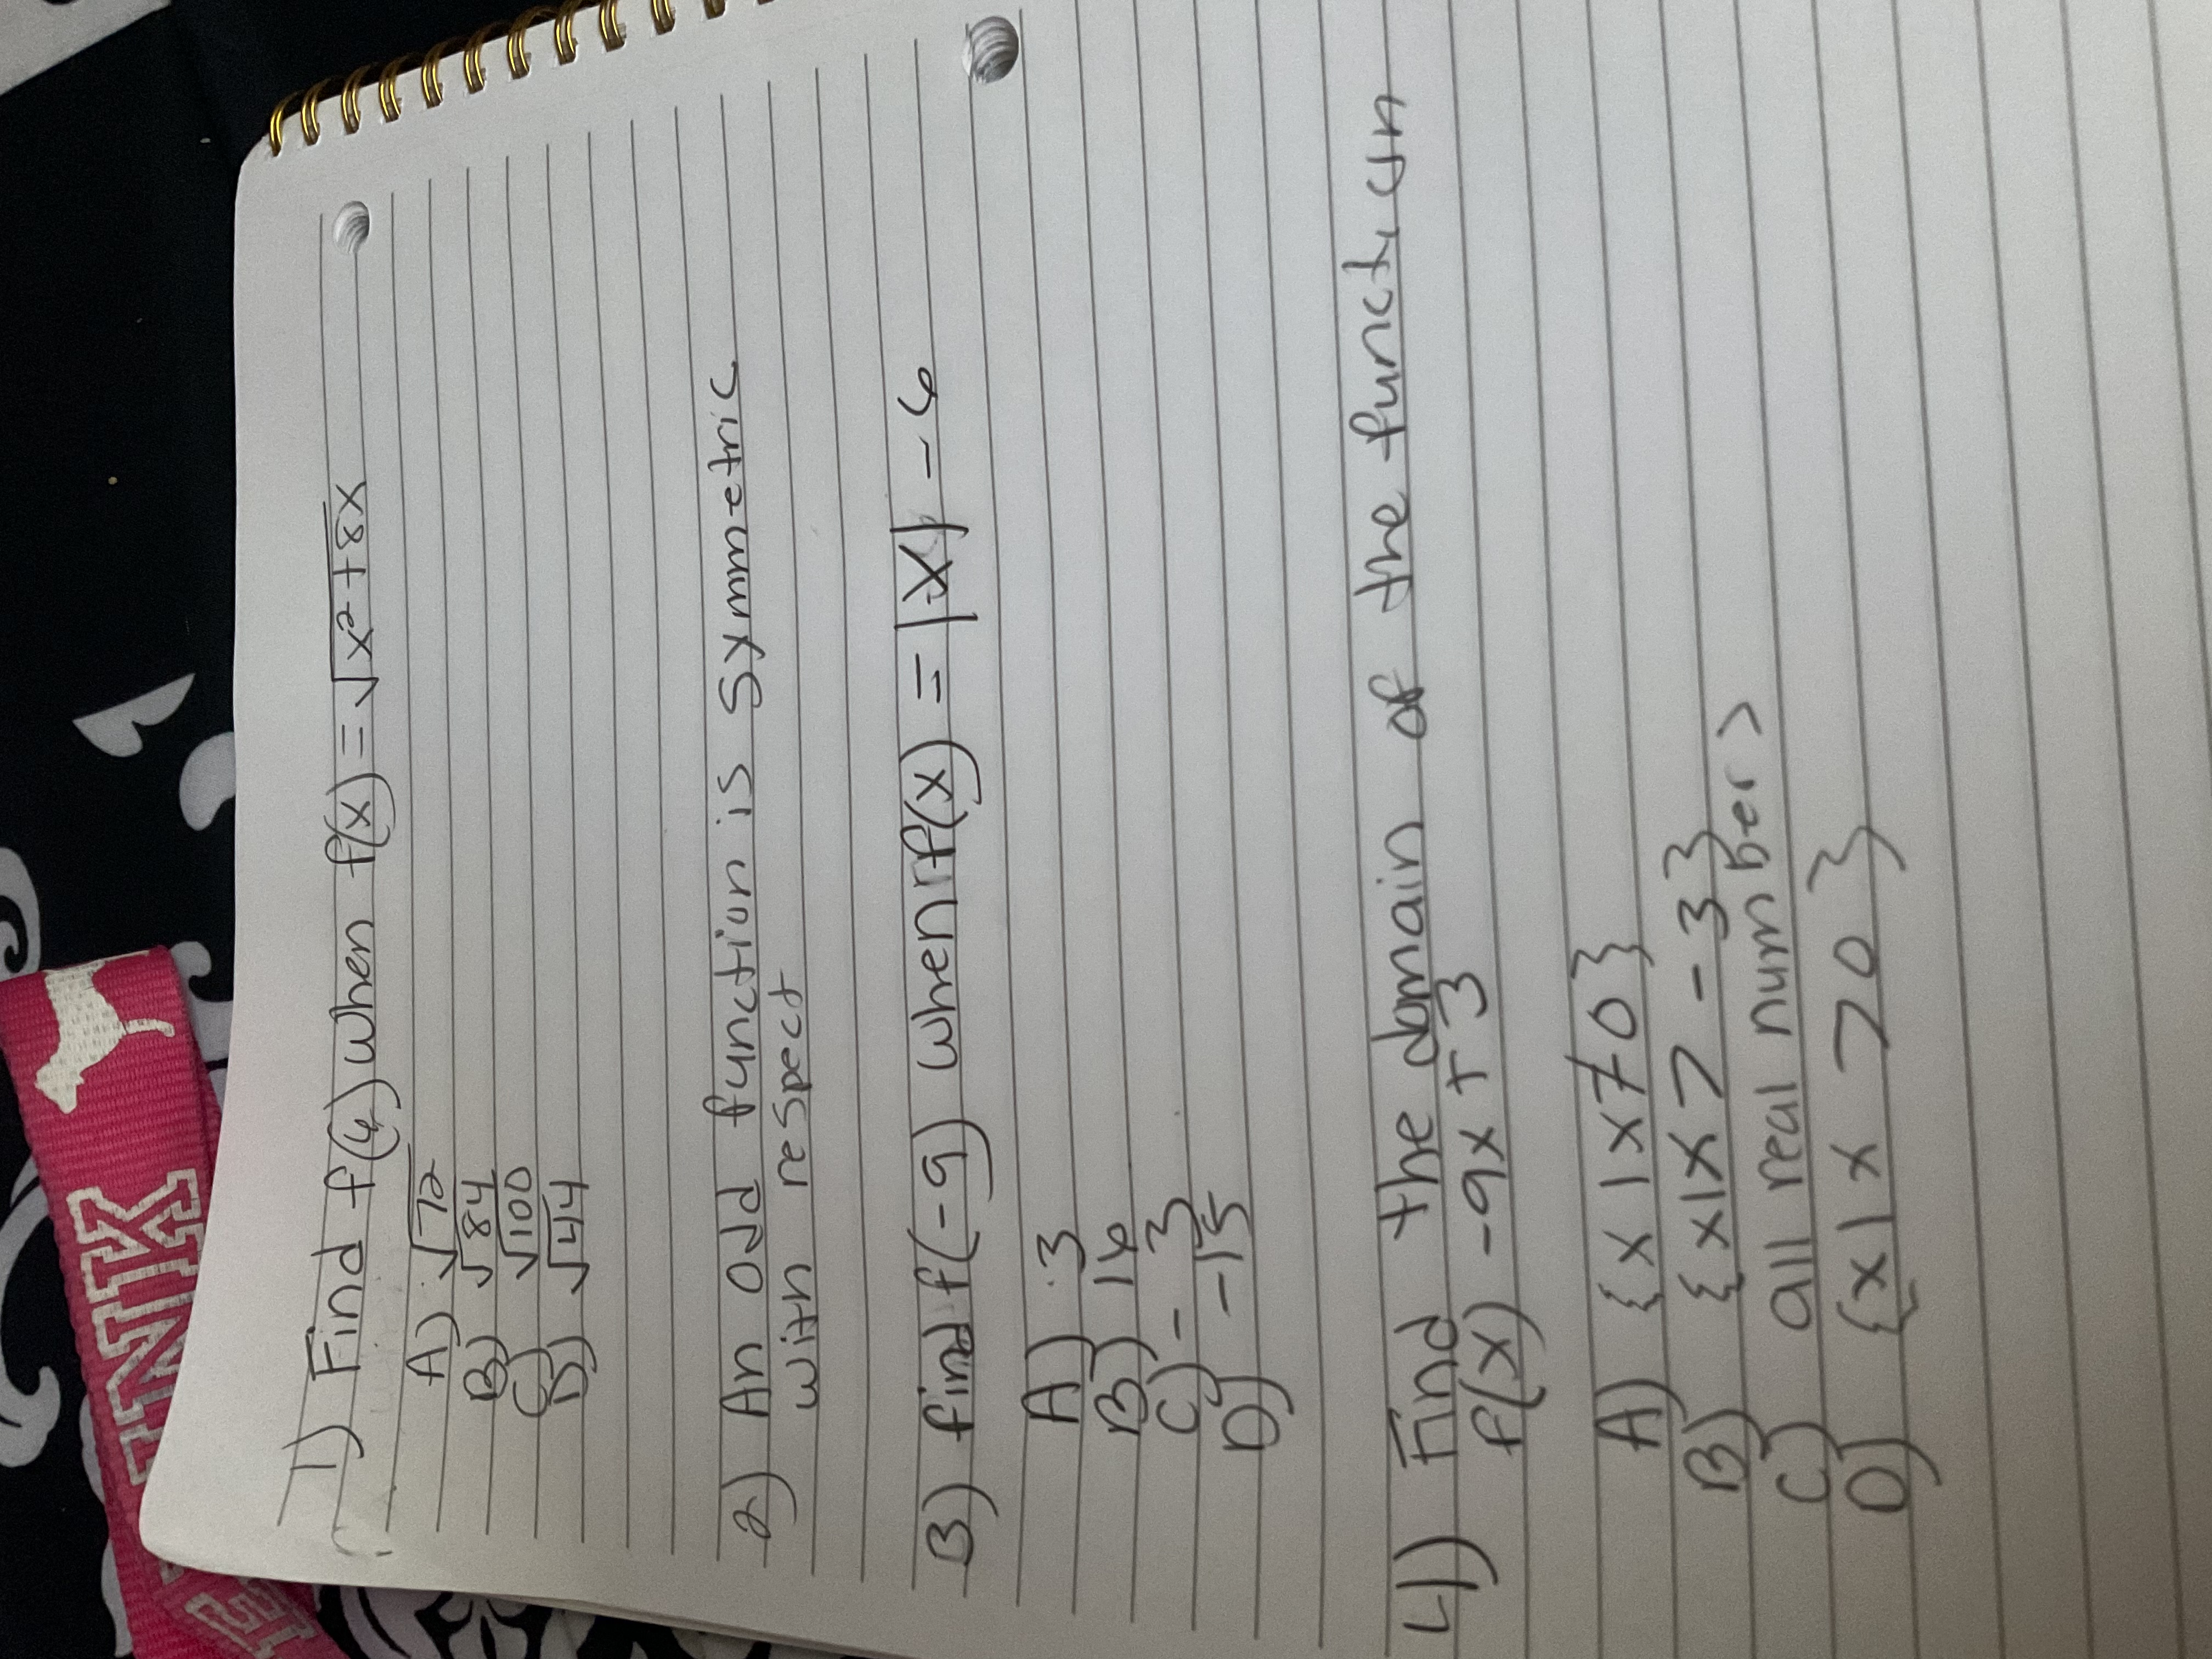 1) Find f(6) when f(x) = √x²+8x
A) √72
B) √84
C) √100
D) √44
2) An odd function is symmetric
with respect
3) find f(-9) when f(x) = |x| - 6
A) 3
B) 16
C) -3
D) -15
4) Find the domain of the function
f(x) -9x + 3
A) {x | x ≠ 0}
B) {x | x > -3}
C) all real numbers
D) {x | x > 0}
PINK